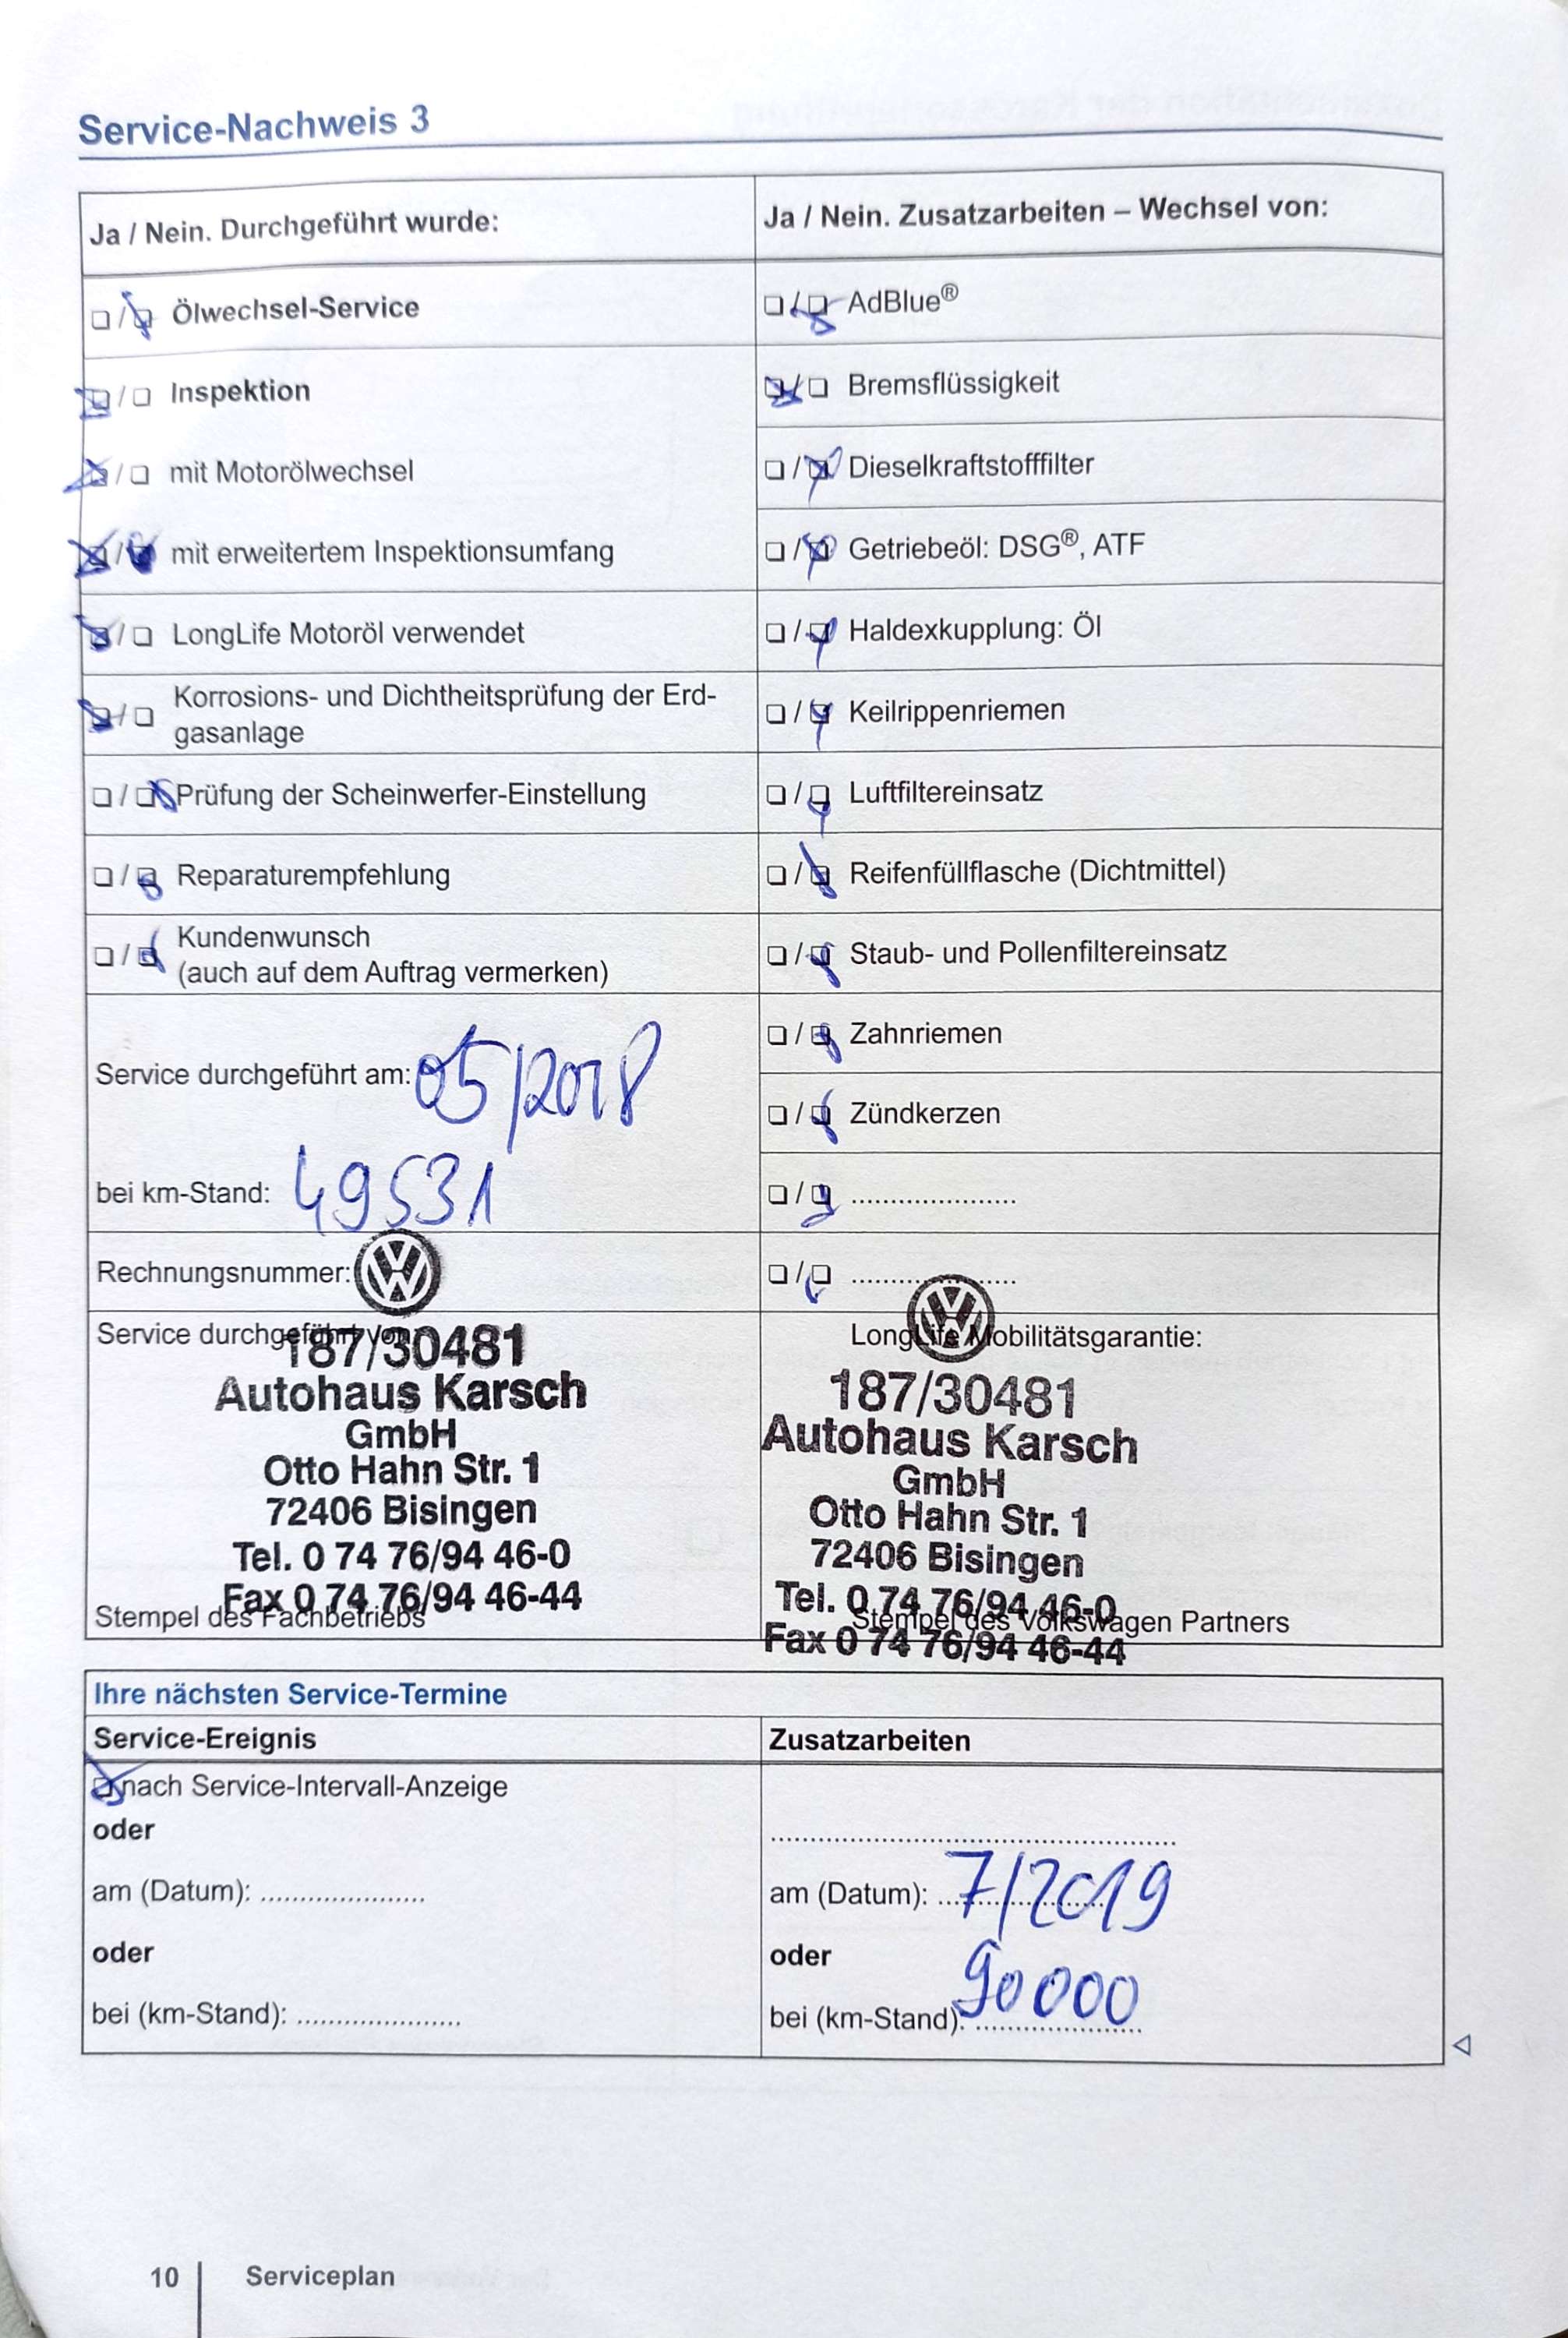 Service-Nachweis 3
Ja / Nein. Durchgeführt wurde:
Ölwechsel-Service
Inspektion
mit Motorölwechsel
mit erweitertem Inspektionsumfang
LongLife Motoröl verwendet
Korrosions- und Dichtheitsprüfung der Erd-
gasanlage
Prüfung der Scheinwerfer-Einstellung
Reparaturempfehlung
Kundenwunsch
(auch auf dem Auftrag vermerken)
Service durchgeführt am: 05/2018
bei km-Stand: 49531
Rechnungsnummer:
Service durchgeführt von:
187/30481
Autohaus Karsch
GmbH
Otto Hahn Str. 1
72406 Bisingen
Tel. 0 74 76/94 46-0
Fax 0 74 76/94 46-44
Stempel des Fachbetriebs
Ja / Nein. Zusatzarbeiten – Wechsel von:
AdBlue®
Bremsflüssigkeit
Dieselkraftstofffilter
Getriebeöl: DSG®, ATF
Haldexkupplung: Öl
Keilrippenriemen
Luftfiltereinsatz
Reifenfüllflasche (Dichtmittel)
Staub- und Pollenfiltereinsatz
Zahnriemen
Zündkerzen
LongLife Mobilitätsgarantie:
187/30481
Autohaus Karsch
GmbH
Otto Hahn Str. 1
72406 Bisingen
Tel. 0 74 76/94 46-0
Stempel des Volkswagen Partners
Fax 0 74 76/94 46-44
Ihre nächsten Service-Termine
Service-Ereignis
nach Service-Intervall-Anzeige
oder
am (Datum): .....................
oder
bei (km-Stand): .....................
Zusatzarbeiten
am (Datum): 7/2019
oder
bei (km-Stand): 90000
10 Serviceplan